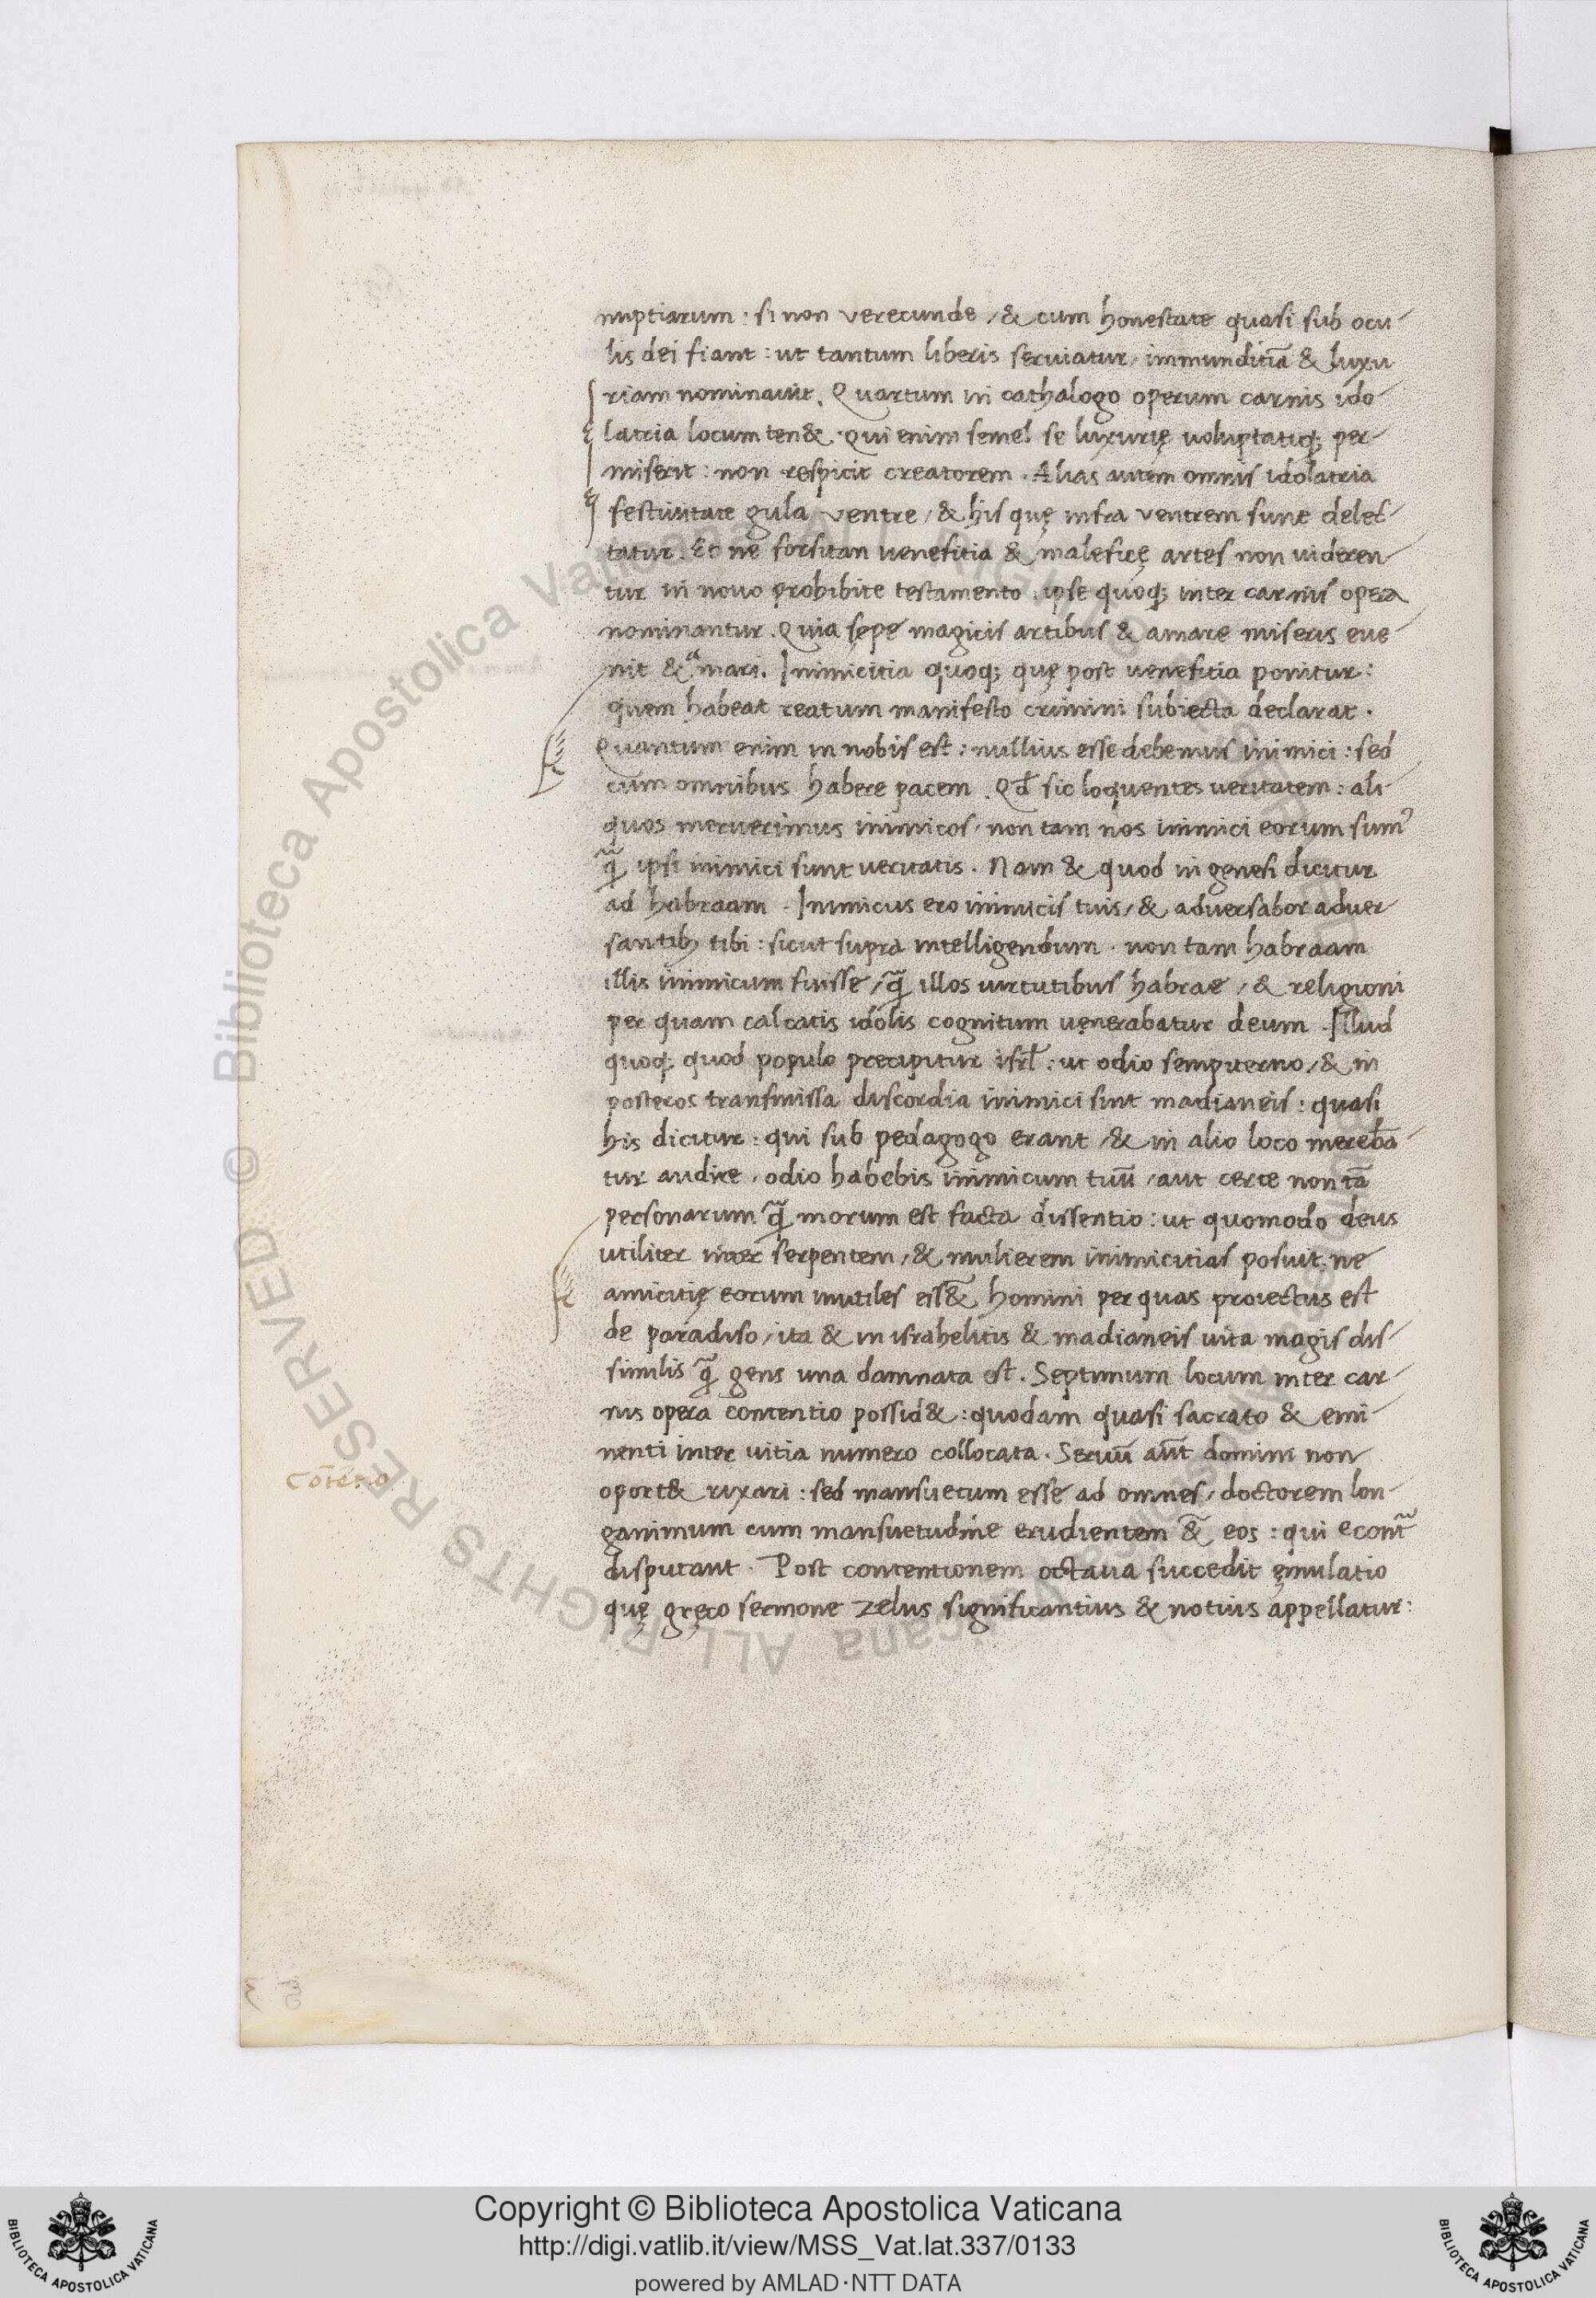 nuptiarum : si non verecunde / & cum honestate quasi sub ocu-
lis dei fiant : ut tantum liberis serviatur / immunditiā & luxu
riam nominavit . Quartum in cathalogo operum carnis ido-
latria locum ten& . Qui enim semel se luxurię voluptatiq; per-
miserit : non respicit creatorem . Alias autem omnis idolatria
festivitate gula ventre / & his quę infra ventrem sunt delec-
tatur . Et ne forsitan venefitia & maleficę artes non videren-
tur in novo prohibite testamento . ipse quoq; inter carnis opera
nominantur . Quia sępe magicis artibus & amare miseris eve-
nit & amari . Inimicitia quoq; quę post venefitia ponitur :
quem habeat reatum manifesto crimini subiecta declarat .
Quantum enim in nobis est : nullius esse debemus inimici : sed
cum omnibus habere pacem . Qđ sic loquentes veritatem : ali-
quos meruerimus inimicos / non tam nos inimici eorum sum᾽
q̃ ipsi inimici sunt veritatis . Nam & quod in genesi dicitur
ad habraam . Inimicus ero inimicis tuis / & adversabor adver-
santib; tibi : sicut supra intelligendum . non tam habraam
illis inimicum fuisse / q̃ illos virtutibus habrae / & religioni
per quam calcatis idolis cognitum venerabatur deum . Illud
quoq; quod populo precipitur isrł : ut odio sempiterno / & in
posteros transmissa discordia inimici sint madianeis : quasi
his dicitur : qui sub pedagogo erant / & in alio loco merebā-
tur audire / odio habebis inimicum tuū / aut certe non tā
personarum q̃ morum est facta dissentio : ut quomodo deus
utiliter inter serpentem / & mulierem inimicitias posuit : ne
amicitię eorum inutiles ess&̄ homini per quas proiectus est
de paradiso / ita & in israhelitis & madianeis vita magis dis-
similis q̃ gens una damnata est . Septimum locum inter car-
nis opera contentio possid& : quodam quasi sacrato & emi-
nenti inter vitia numero collocata . Servū aūt domini non
cōtēt.o
oport& rixari : sed mansuetum esse ad omnes / doctorem lon-
ganimum cum mansuetudine erudientem &̄ eos : qui econt̃
disputant . Post contentionem octava succedit ęmulatio
quę gręco sermone zelus significantius & notius appellatur :
Copyright © Biblioteca Apostolica Vaticana
http://digi.vatlib.it/view/MSS_Vat.lat.337/0133
powered by AMLAD·NTT DATA